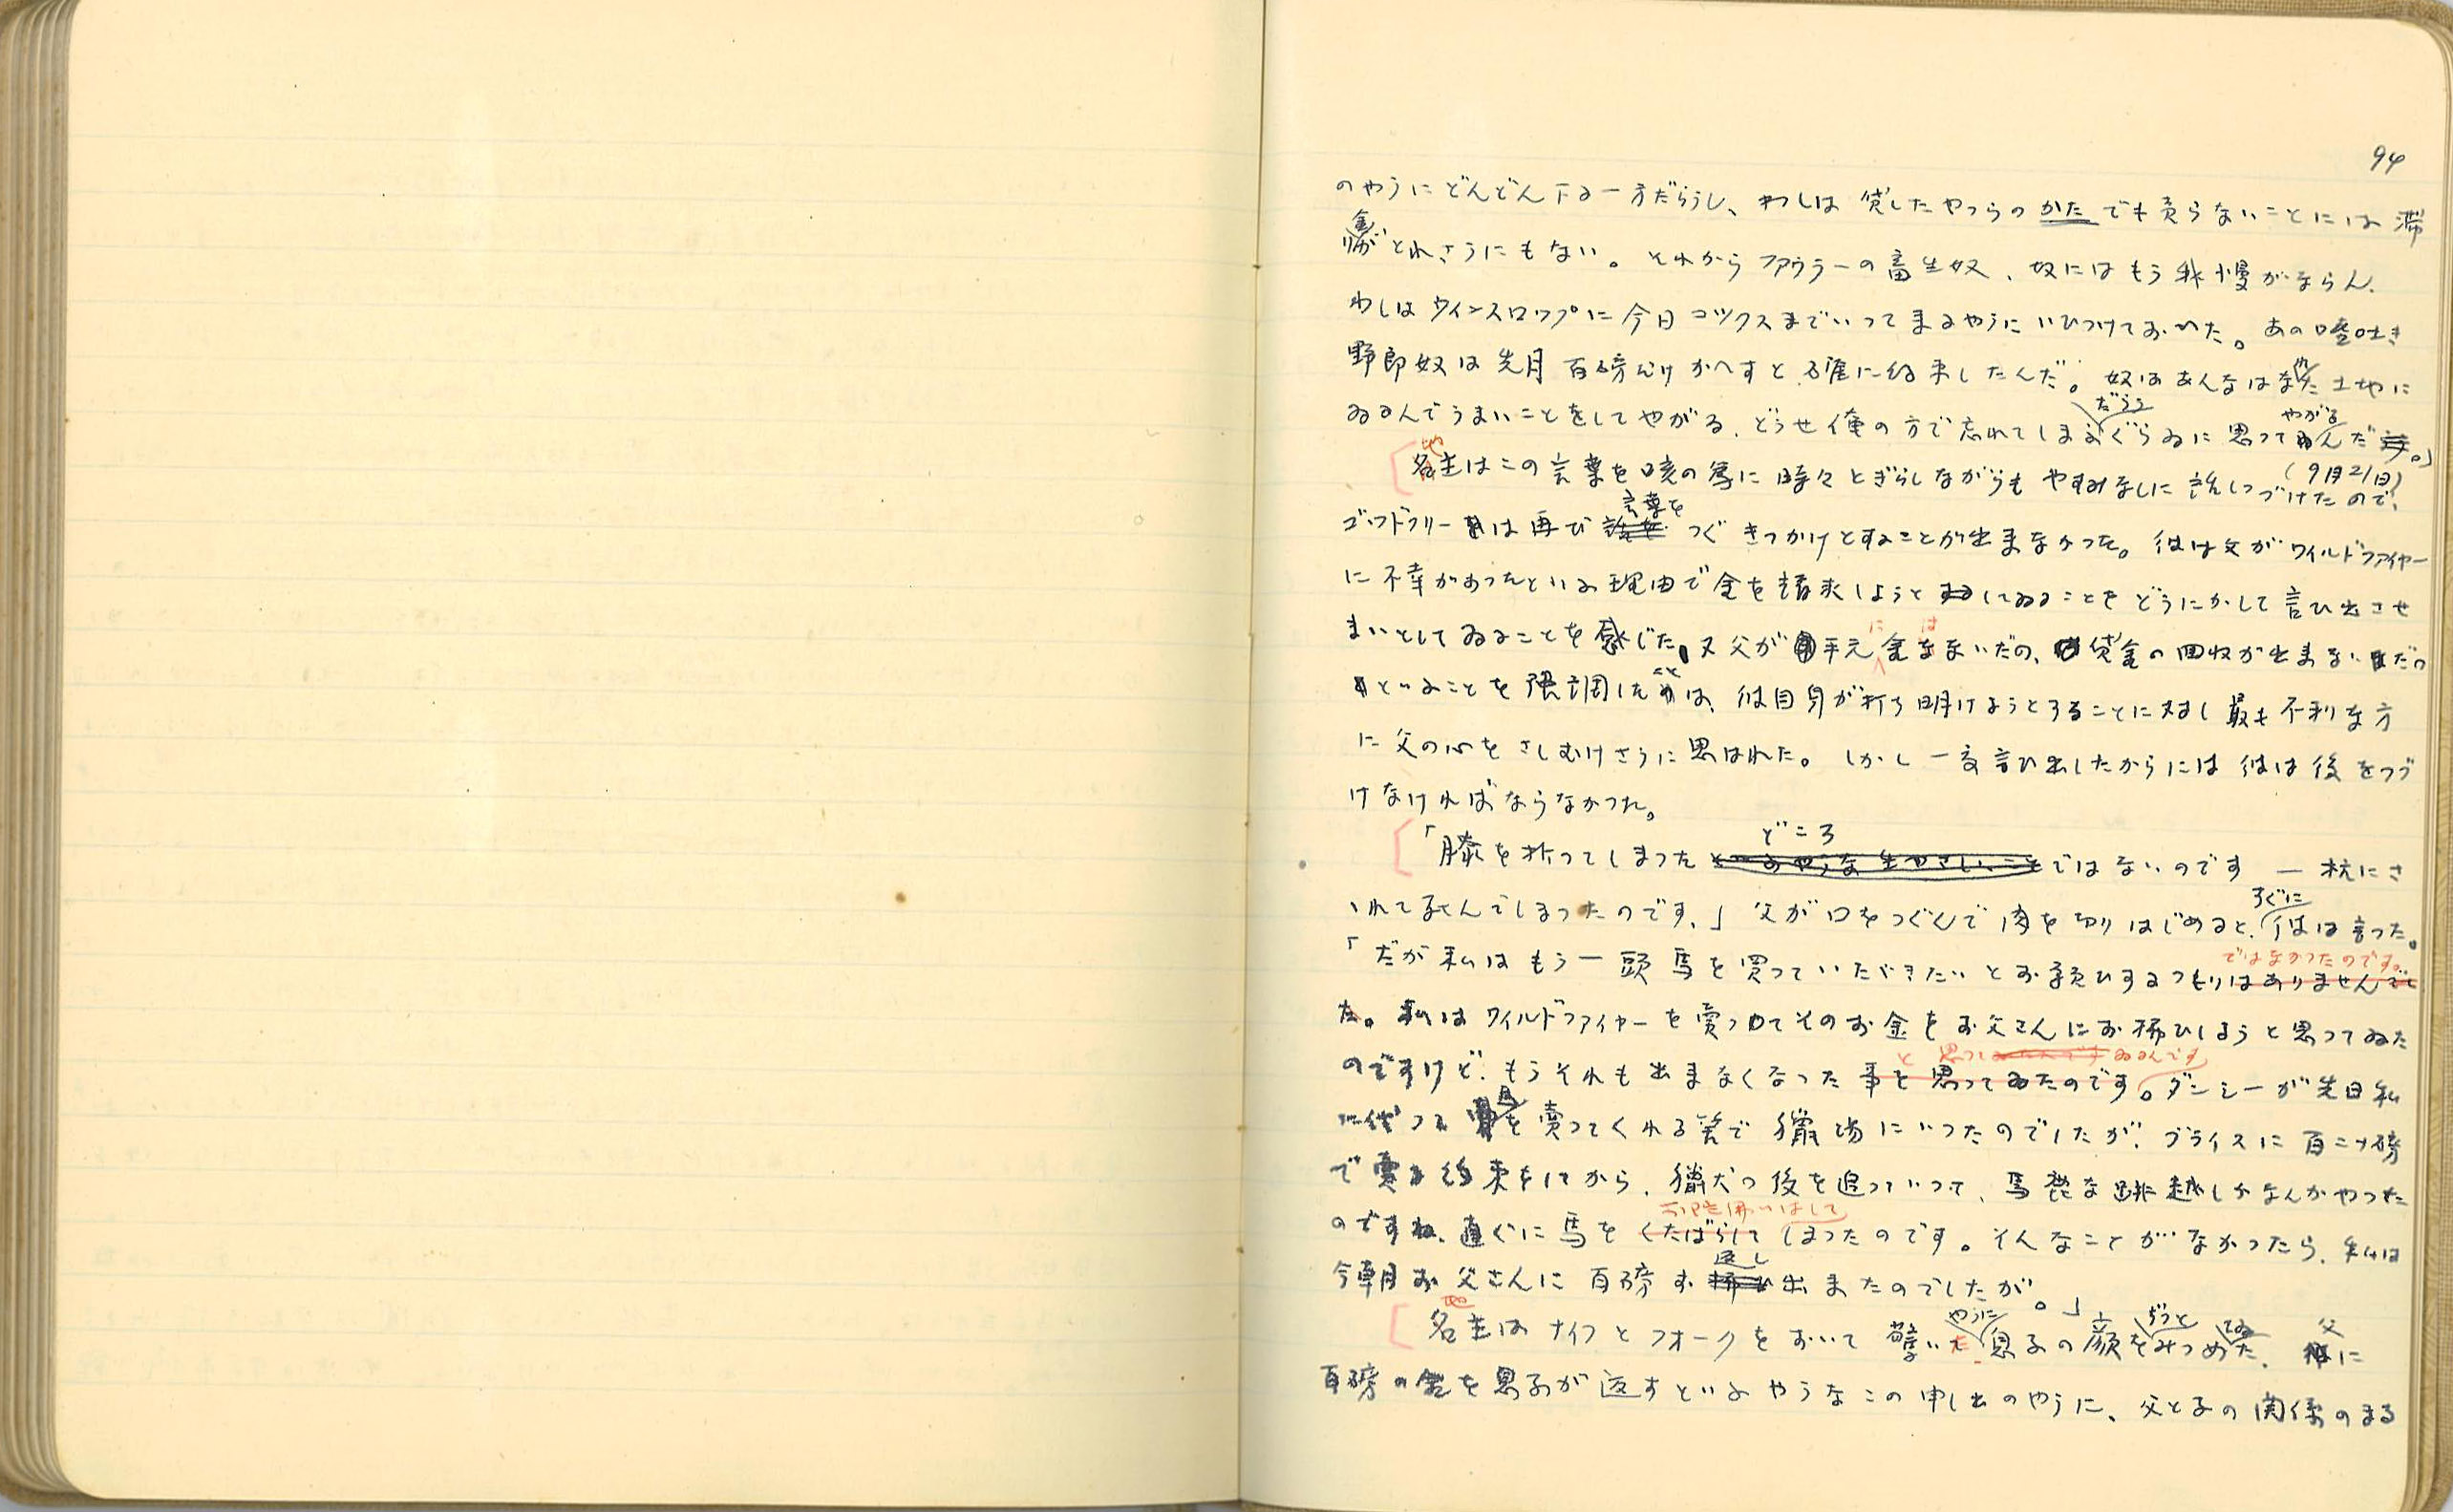 94
のやうにどんどん下る一方だらうし、わしは貸したやつらのかたでも売らないことには滞
金がとれさうにもない。それからファウラーの畜生奴、奴にはもう我慢がならん。
わしはウィンスロップに今日コックスまでいってまゐるやうにいひつけておいた。あの嘘吐き
野郎奴は先月百磅だけかへすと確に約束したんだ。奴はあんなはなれた土地に
ゐるんでうまいことをしてやがる、どうせ俺の方で忘れてしまふだらうぐらゐに思ってやがるんだ。」
(9月21日)
地主はこの言葉を咳の為に時々とぎらしながらもやすみなしに話しつづけたので、
ゴッドフリーは再び言葉をつぐきっかけとすることが出来なかった。彼は父がワイルドファイヤー
に不幸があったといふ理由で金を請求しようとしてゐることをどうにかして言ひ出させ
まいとしてゐることを感じた。又父が手元に金はないだの、貸金の回収が出来ないだの
といふことを強調したことは、彼自身が打ち明けようとすることに対し最も不利な方
に父の心をさしむけさうに思はれた。しかし一度言ひ出したからには彼は後をつづ
けなければならなかった。
「膝を折ってしまったどころではないのです ― 杭にさ
ゝれて死んでしまったのです、」父が口をつぐんで肉を切りはじめると、すぐに彼は言った。
「だが私はもう一頭馬を買っていたゞきたいとお願ひするつもりではなかったのです。
私はワイルドファイヤーを売ってそのお金をお父さんにお払ひしようと思ってゐた
のですけど、もうそれも出来なくなったと思ってゐるんです。ダンシーが先日私
に代って馬を売ってくれる筈で猟場にいったのでしたが、ブライスに百二十磅
で売る約束をしてから、猟犬の後を追っていって、馬鹿な跳越しかなんかやった
のですね、直ぐに馬をお陀仏にしてしまったのです。そんなことがなかったら、私は
今朝お父さんに百磅お返し出来たのでしたが。」
地主はナイフとフォークをおいて驚いたやうに息子の顔をぢっとみつめてゐた、父に
百磅の金を息子が返すといふやうなこの申し出のやうに、父と子の関係のまる